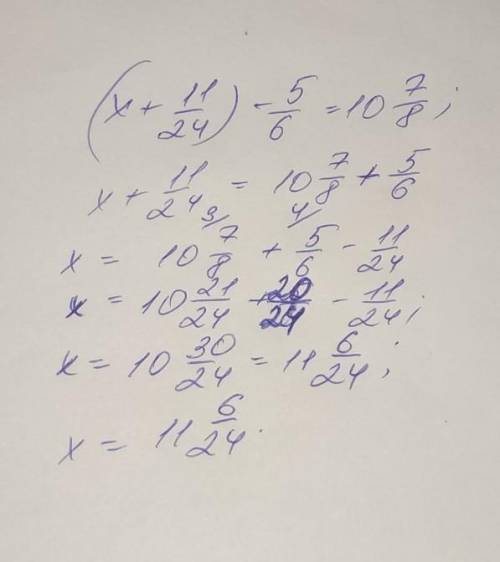 (x + 11/24) - 5/6 = 10 7/8;
x + 11/24 = 10 7/8 + 5/6
x = 10 3/ 7/8 + 4/ 5/6 - 11/24
x = 10 21/24 + 20/24 - 11/24;
x = 10 30/24 = 11 6/24;
x = 11 6/24.